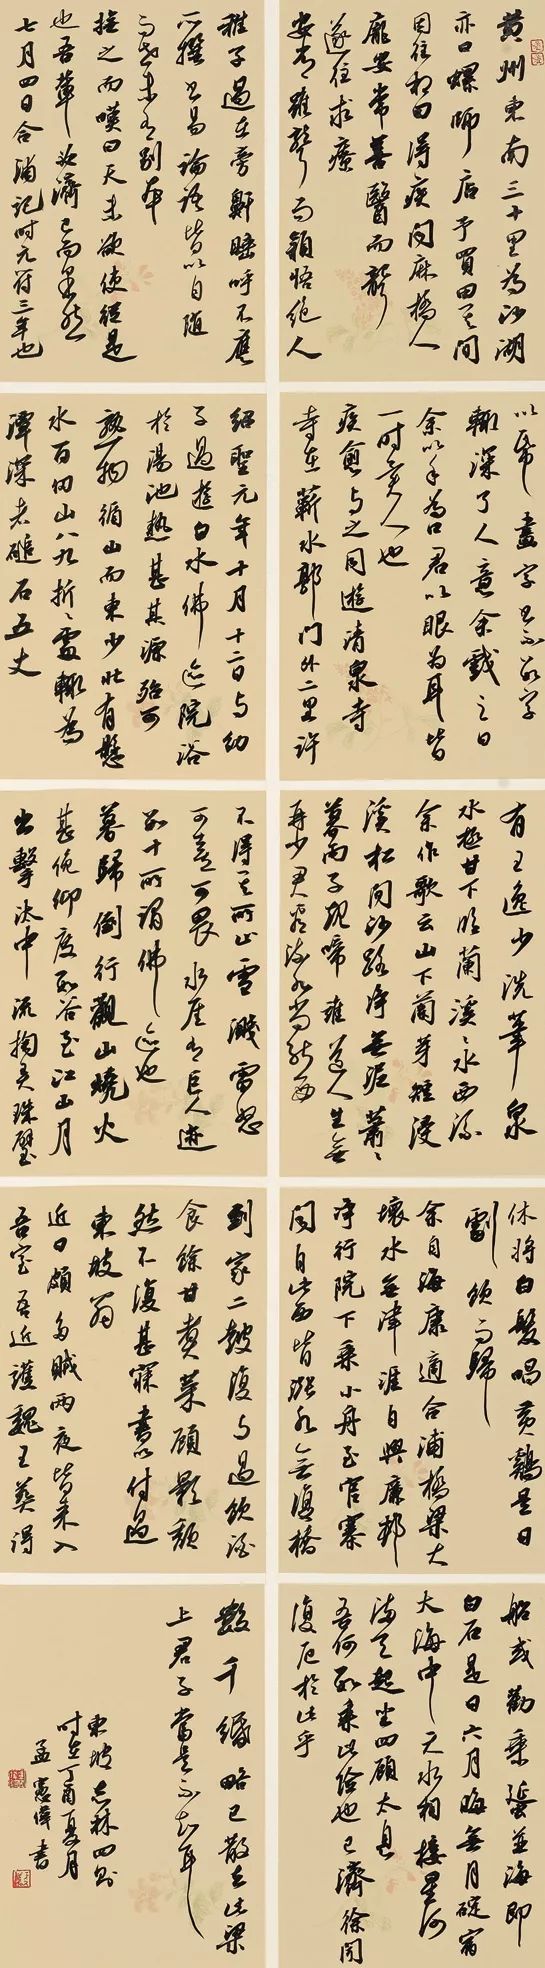 黄州東南三十里為沙湖
亦曰螺師店予買田其間
因往相田得疾聞麻橋人
龐安常善醫而聾
遂往求療
安常雖聾而穎悟絕人
以紙畫字書不數字
輒深了人意余戲之曰
余以手為口君以眼為耳皆
一時異人也
疾愈與之同遊清泉寺
寺在蘄水郭門外二里許
有王逸少洗筆泉
水極甘下臨蘭溪溪水西流
余作歌云山下蘭芽短浸
溪松間沙路淨無泥蕭蕭
暮雨子規啼誰道人生無
再少君看流水尚能西
休將白髮唱黄鷄是日
劇飲而歸
余自海康適合浦橋梁大
壞水無津涯自興廉邨
淨行院下乘小舟至官寨
聞自此西皆漲水無復橋
船或勸乘蜑並海即
白石是日六月晦無月碇宿
大海中天水相接星河
滿天起坐四顧太息
吾何數乘此險也已濟徐聞
復厄於此乎
稚子過在旁鼾睡呼不應
所撰書易論語皆以自隨
而世未有別本
撫之而嘆曰天未欲使從是
也吾輩必濟已而果然
七月四日合浦記時元符三年也
紹聖元年十月十二日與幼
子過遊白水佛迹院浴
於湯池熱甚其源殆可
熟物循山而東少北有懸
水百仞山八九折折處輒為
潭深者磓石五丈
不得其所止雪濺雷怒
可喜可畏水崖有巨人迹
數十所謂佛迹也
暮歸倒行觀山燒火
甚俛仰度數谷至江山月
出擊汰中流掬弄珠璧
到家二鼓復與過飲酒
食餘甘煮菜顧影頹
然不復甚寐書以付過
東坡翁
近日頗多賊兩夜皆來入
吾室吾近護魏王葬得
數千緡略已散去此梁
上君子當是不知耳
東坡志林四則
時在丁酉夏月
孟憲偉書